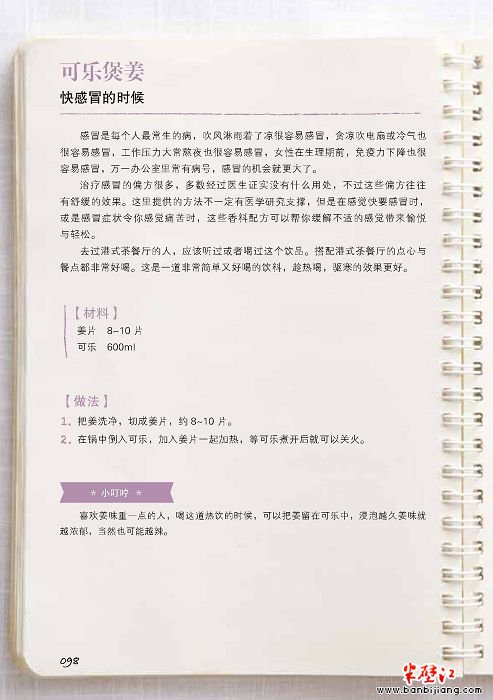 可乐煲姜
快感冒的时候
感冒是每个人最常生的病，吹风淋雨着了凉很容易感冒，贪凉吹电扇或冷气也
很容易感冒，工作压力大常熬夜也很容易感冒，女性在生理期前，免疫力下降也很
容易感冒，万一办公室里常有病号，感冒的机会就更大了。
治疗感冒的偏方很多，多数经过医生证实没有什么用处，不过这些偏方往往
有舒缓的效果。这里提供的方法不一定有医学研究支撑，但是在感觉快要感冒时，
或是感冒症状令你感觉痛苦时，这些香料配方可以帮你缓解不适的感觉带来愉悦
与轻松。
去过港式茶餐厅的人，应该听过或者喝过这个饮品。搭配港式茶餐厅的点心与
餐点都非常好喝。这是一道非常简单又好喝的饮料，趁热喝，驱寒的效果更好。
【材料】
姜片 8~10 片
可乐 600ml
【做法】
1. 把姜洗净，切成姜片，约 8~10 片。
2. 在锅中倒入可乐，加入姜片一起加热，等可乐煮开后就可以关火。
* 小叮咛 *
喜欢姜味重一点的人，喝这道热饮的时候，可以把姜留在可乐中，浸泡越久姜味就
越浓郁，当然也可能越辣。
098
半壁江
www.banbijiang.com